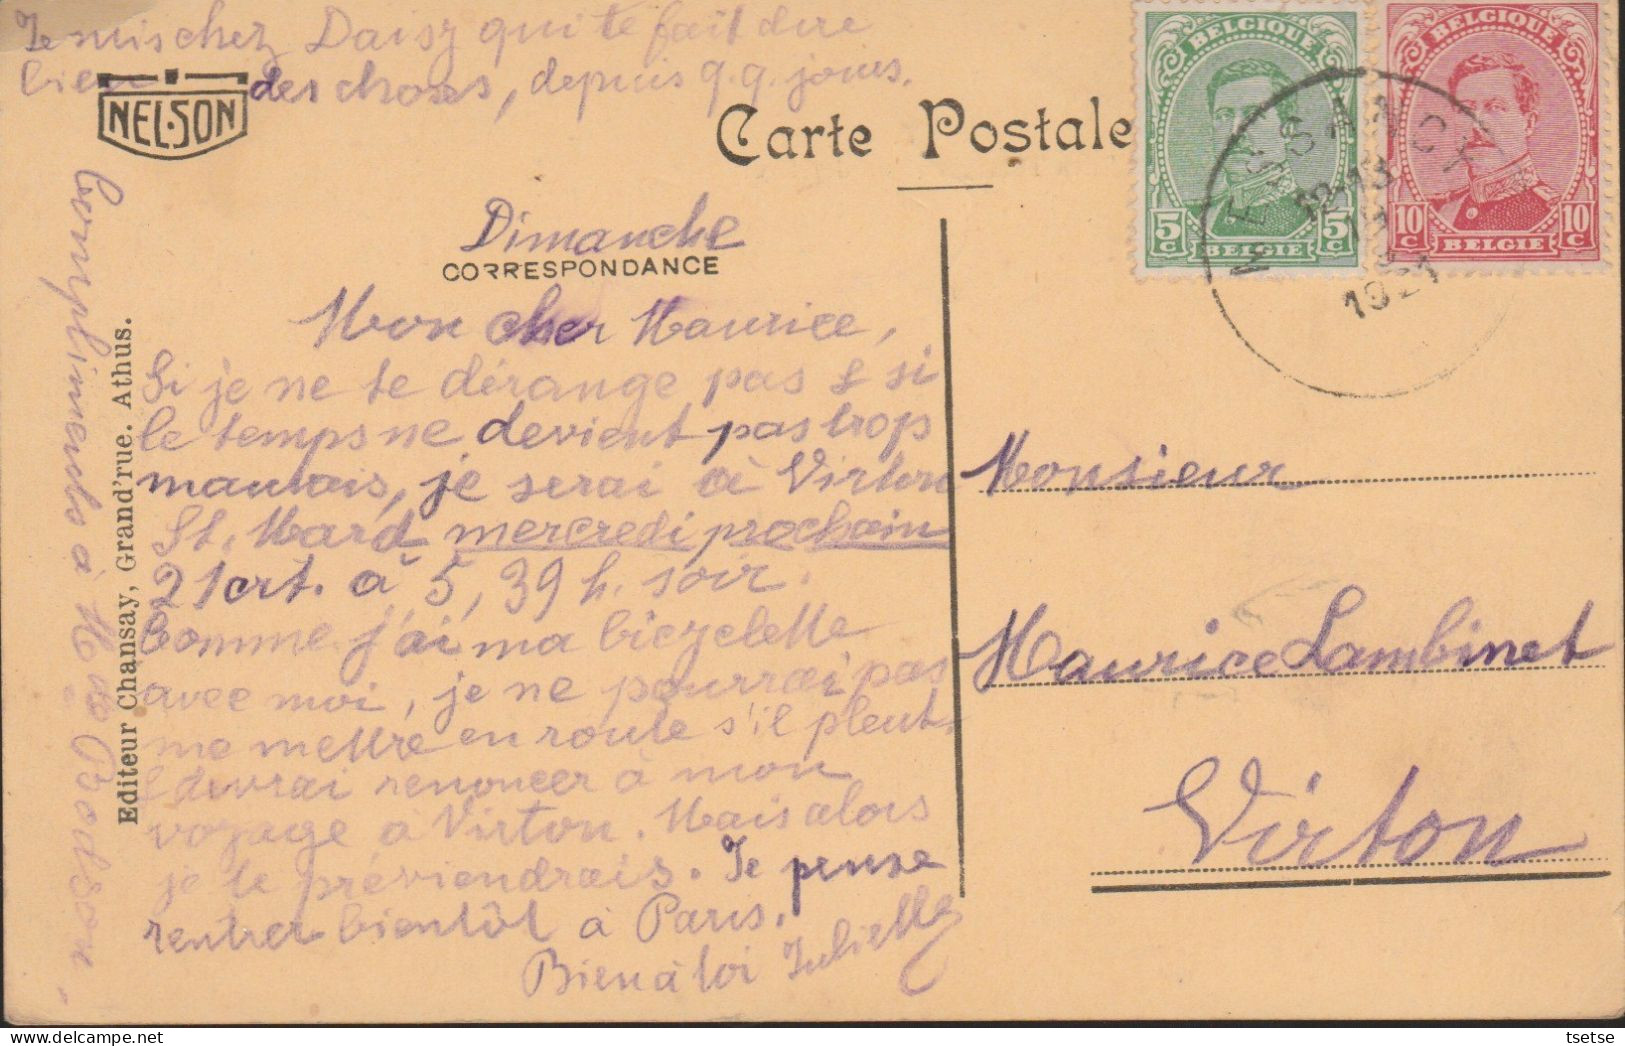 Je suis chez Daisy qui te fait dire
bien des choses, depuis q.q. jours.
NELSON
Carte Postale
BELGIQUE
5c 5c
BELGIE
BELGIQUE
10c 10c
BELGIE
MESSANCY
12-13
1921
Dimanche
CORRESPONDANCE
Mon cher Maurice,
Si je ne te dérange pas & si
le temps ne devient pas trop
mauvais, je serai à Virton
St. Mard mercredi prochain
21 crt. à 5,39 h. soir.
Comme j'ai ma bicyclette
avec moi, je ne pourrai pas
me mettre en route s'il pleut.
& devrai renoncer à mon
voyage à Virton. Mais alors
je te préviendrais. Je pense
rentrer bientôt à Paris.
Bien à toi Juliette
Compliments à Mme Bodson.
Editeur Chansay, Grand'rue. Athus.
Monsieur
Maurice Lambinet
Virton
tsetse